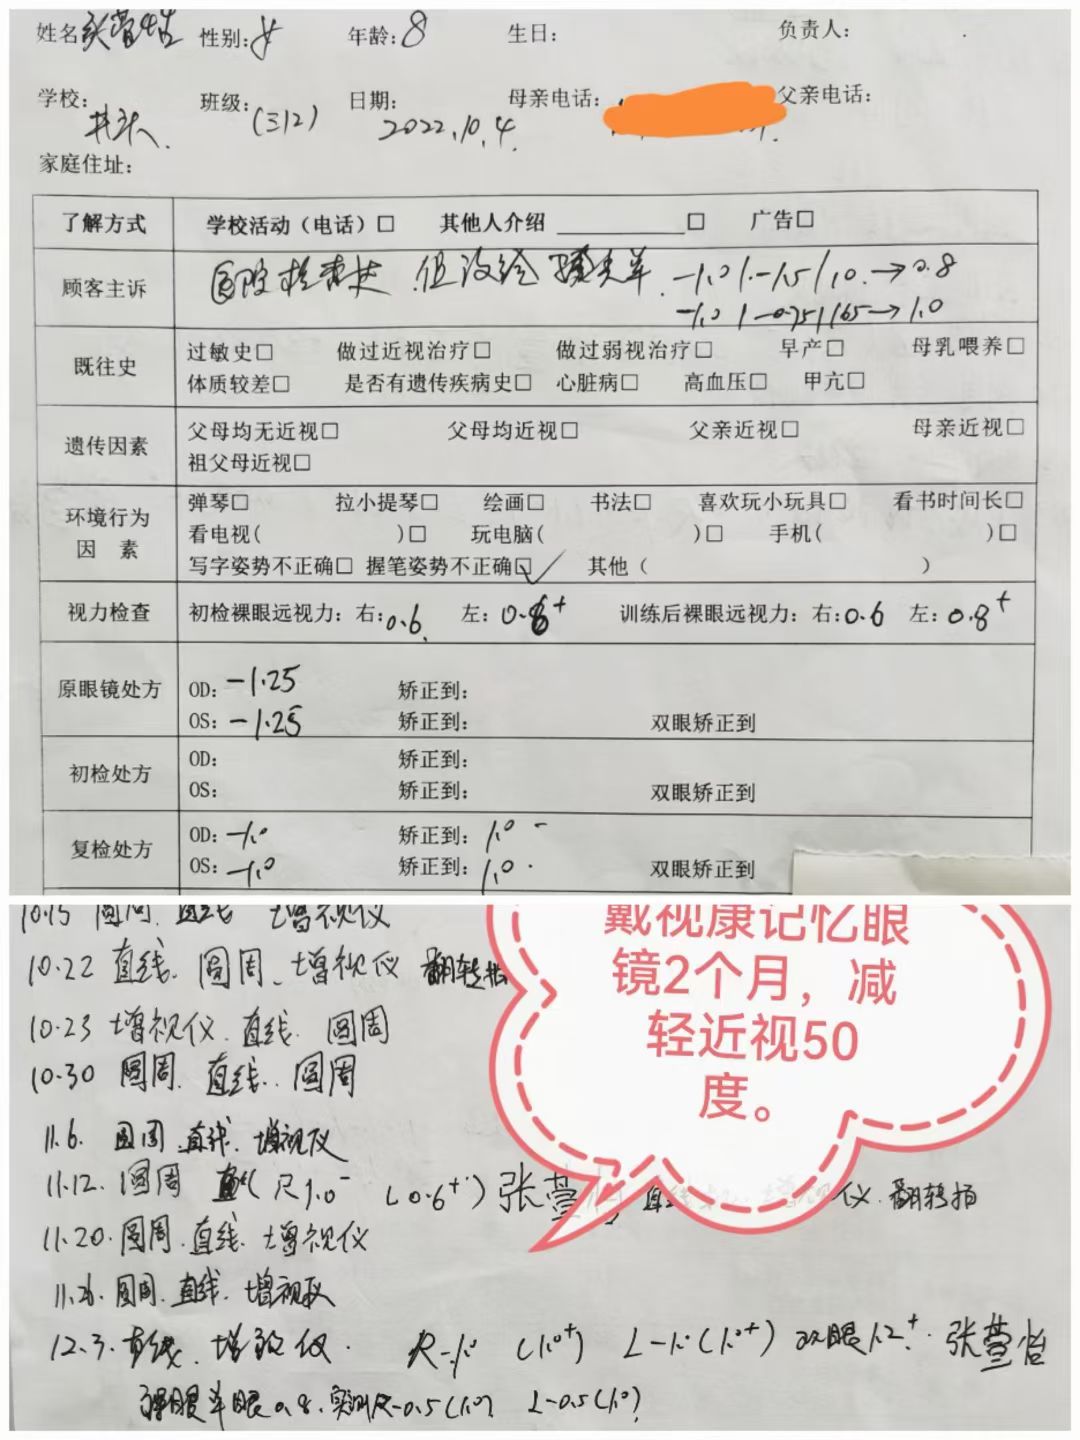 姓名 张萱怡 性别: 女 年龄: 8 生日: 负责人:
学校: 井头 班级: (312) 日期: 2022.10.4. 母亲电话: 父亲电话:
家庭住址:
了解方式 学校活动（电话）□ 其他人介绍 ____________□ 广告□
顾客主诉 医院检查过 但没给 -1.0/-1.5/10.→0.8
-1.0/-0.75/165→1.0
既往史 过敏史□ 做过近视治疗□ 做过弱视治疗□ 早产□ 母乳喂养□
体质较差□ 是否有遗传疾病史□ 心脏病□ 高血压□ 甲亢□
遗传因素 父母均无近视□ 父母均近视□ 父亲近视□ 母亲近视□
祖父母近视□
环境行为因素 弹琴□ 拉小提琴□ 绘画□ 书法□ 喜欢玩小玩具□ 看书时间长□
看电视( )□ 玩电脑( )□ 手机( )□
写字姿势不正确□ 握笔姿势不正确□✓ 其他（ ）
视力检查 初检裸眼远视力：右:0.6. 左:0.8+ 训练后裸眼远视力：右:0.6 左:0.8+
原眼镜处方 OD: -1.25 矫正到:
OS: -1.25 矫正到: 双眼矫正到
初检处方 OD: 矫正到:
OS: 矫正到: 双眼矫正到
复检处方 OD: -1.0 矫正到: 1.0-
OS: -1.0 矫正到: 1.0. 双眼矫正到
10.15 圆周. 直线 增视仪
10.22 直线. 圆周. 增视仪 翻转拍
10.23 增视仪. 直线. 圆周
10.30 圆周. 直线. 圆周
11.6. 圆周. 直线. 增视仪
11.12. 圆周 直线 (R 1.0- L 0.6+) 张萱怡 仪. 翻转拍
11.20. 圆周. 直线. 增视仪
11.26. 圆周. 直线. 增视仪
12.3. 直线. 增视仪. R-1.0 (1.0+) L-1.0 (1.0+) 双眼1.2+. 张萱怡
裸眼单眼0.8. 实测R-0.5(1.0) L-0.5(1.0)
戴视康记忆眼
镜2个月，减
轻近视50
度。